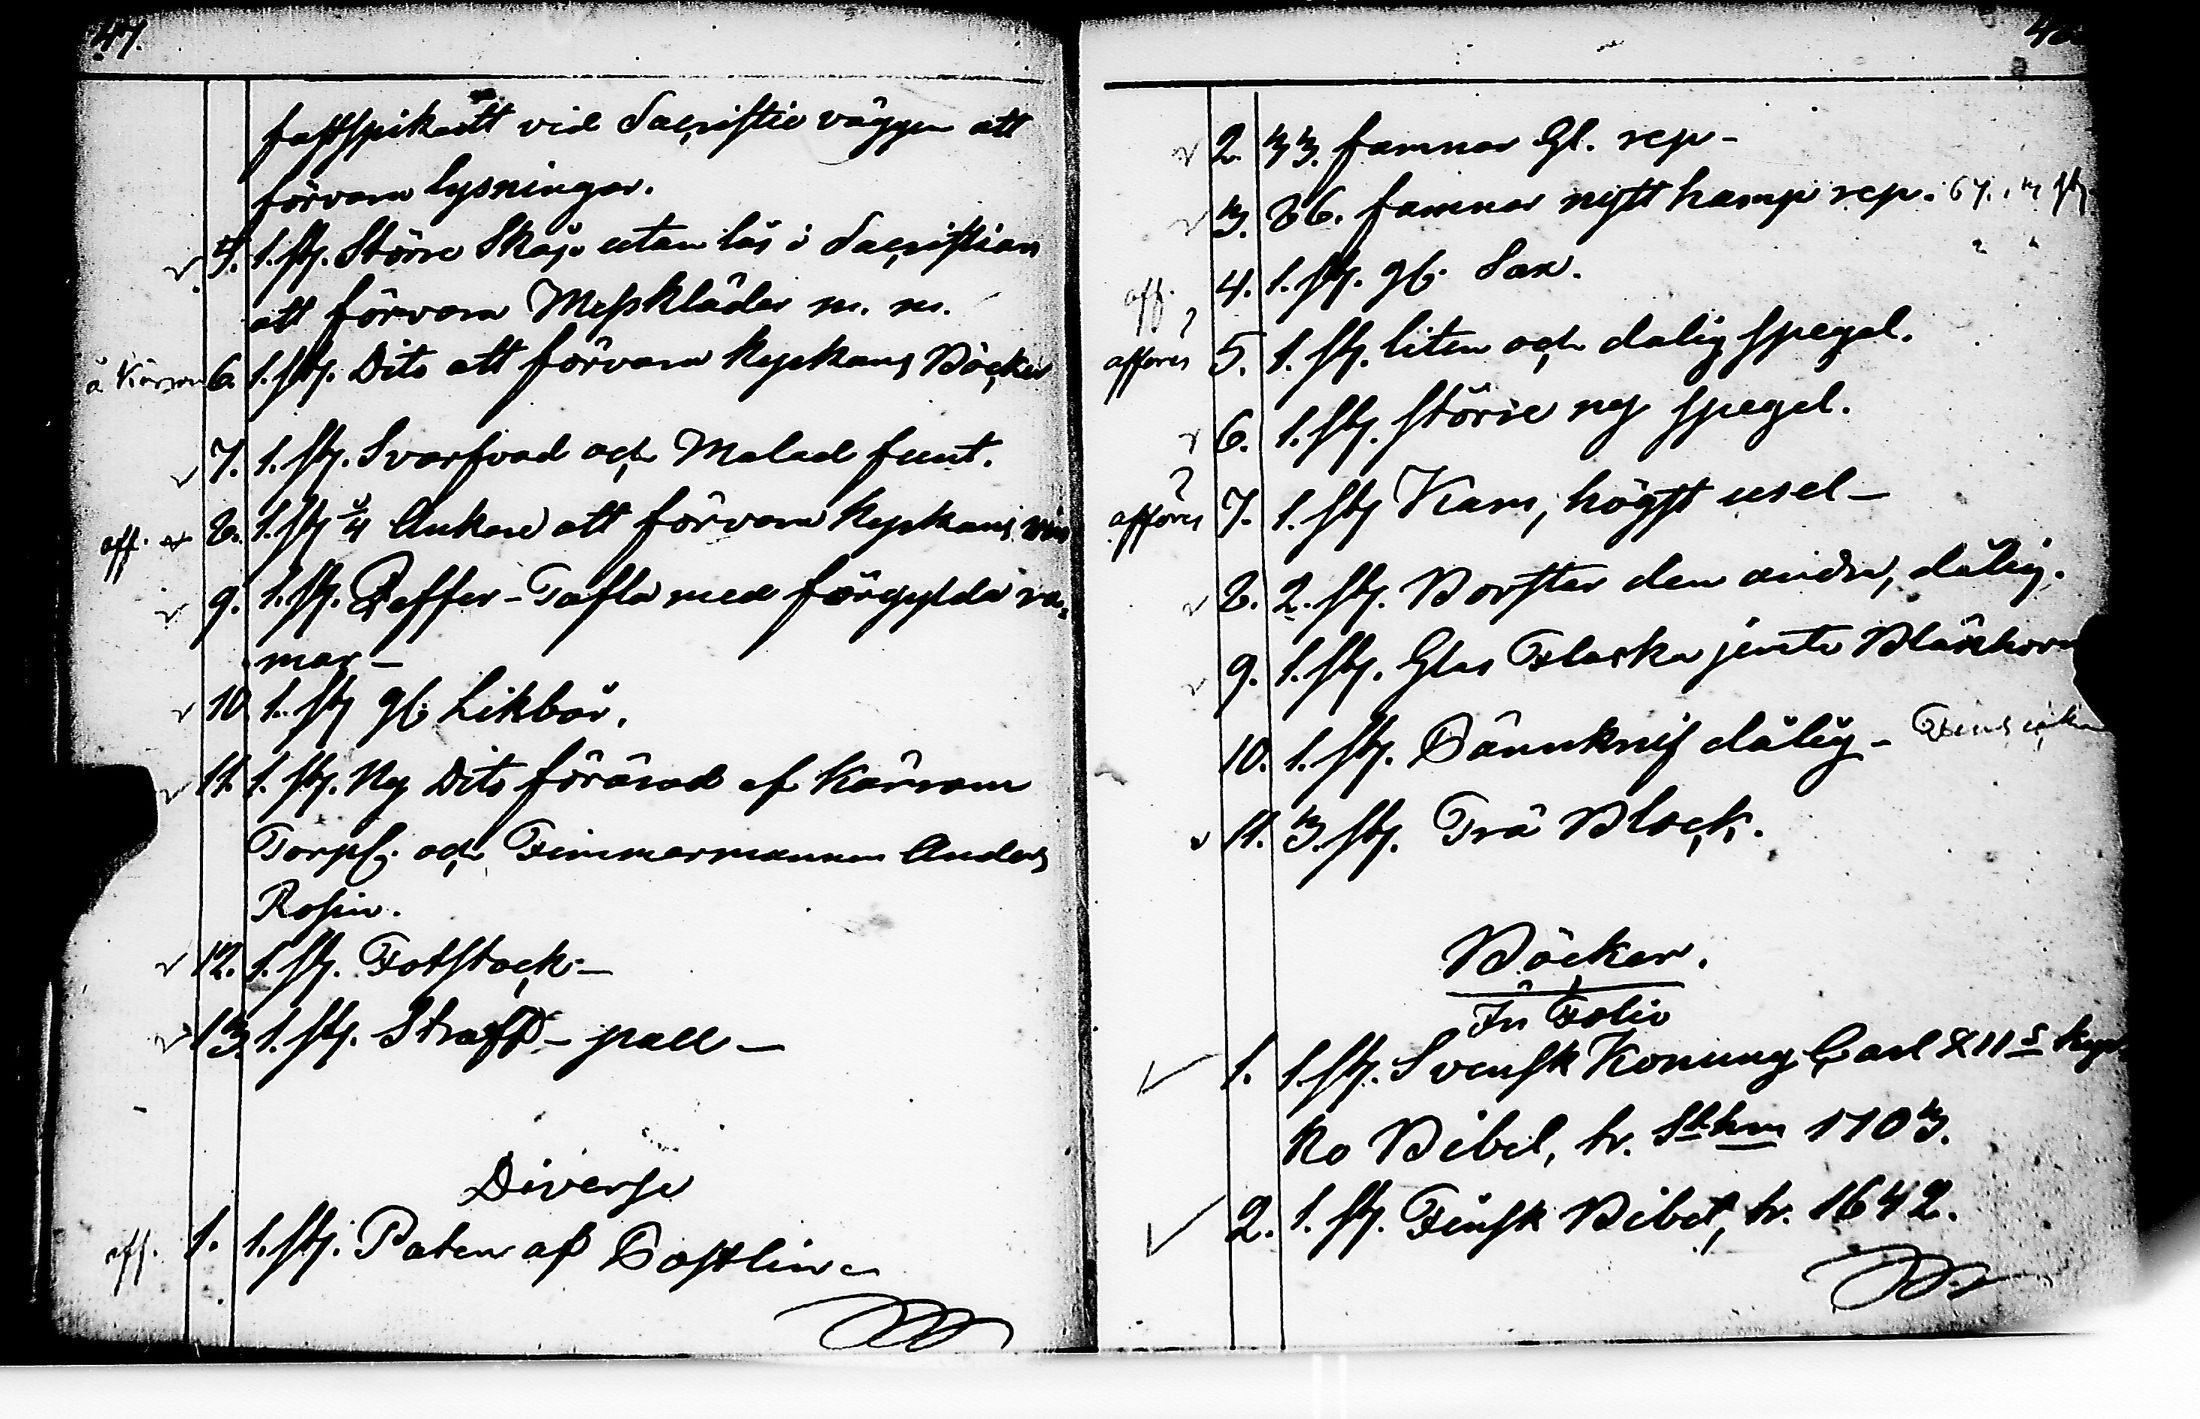 47.
fastspikadt vid Sacristie väggen att
förvara lysningar.
5. 1. st. Större Skåp utan lås i Sacristian
att förvara Messkläder m. m.
6. 1. st. Dito att förvara kyrkans Böcker
7. 1. st. Svarfvad och Malad funt.
aff. 8. 1. st. ¼ Ankare att förvara kyrkans vin
9. 1. st. Peffer-Tafla med förgylda ra-
mar-
10 1. st gl. Likbår.
11. 1. st. Ny Dito förärad af Kärsom
Torpf. och Timmermannen Anders
Rosin.
12. 1. st. Fotstock-
13. 1. st. Straff-pall-
Diverse
aff. 1. 1. st. Paten af Postlin
2. 33. famnar Gl. rep-
3. 86. famnar nytt hamp rep.
aff. 4. 1. st. gl. Sax.
? afföres 5. 1. st. liten och dalig spegel.
6. 1. st. större ny spegel.
? afföres 7. 1. st Kam, högst usel-
8. 2. st. Borstar den andra, dålig.
9. 1. st. Glas Flaska jemte Bläckhorn
10. 1. st. Pännknif dålig- Fins icke
11. 3. st. Trä Block.
Böcker.
In Folio
1. 1. st. Svensk Konung Carl XIIs kyr-
ko Bibel, tr. Sthm 1703.
2. 1. st. Finsk Bibel, tr. 1642.